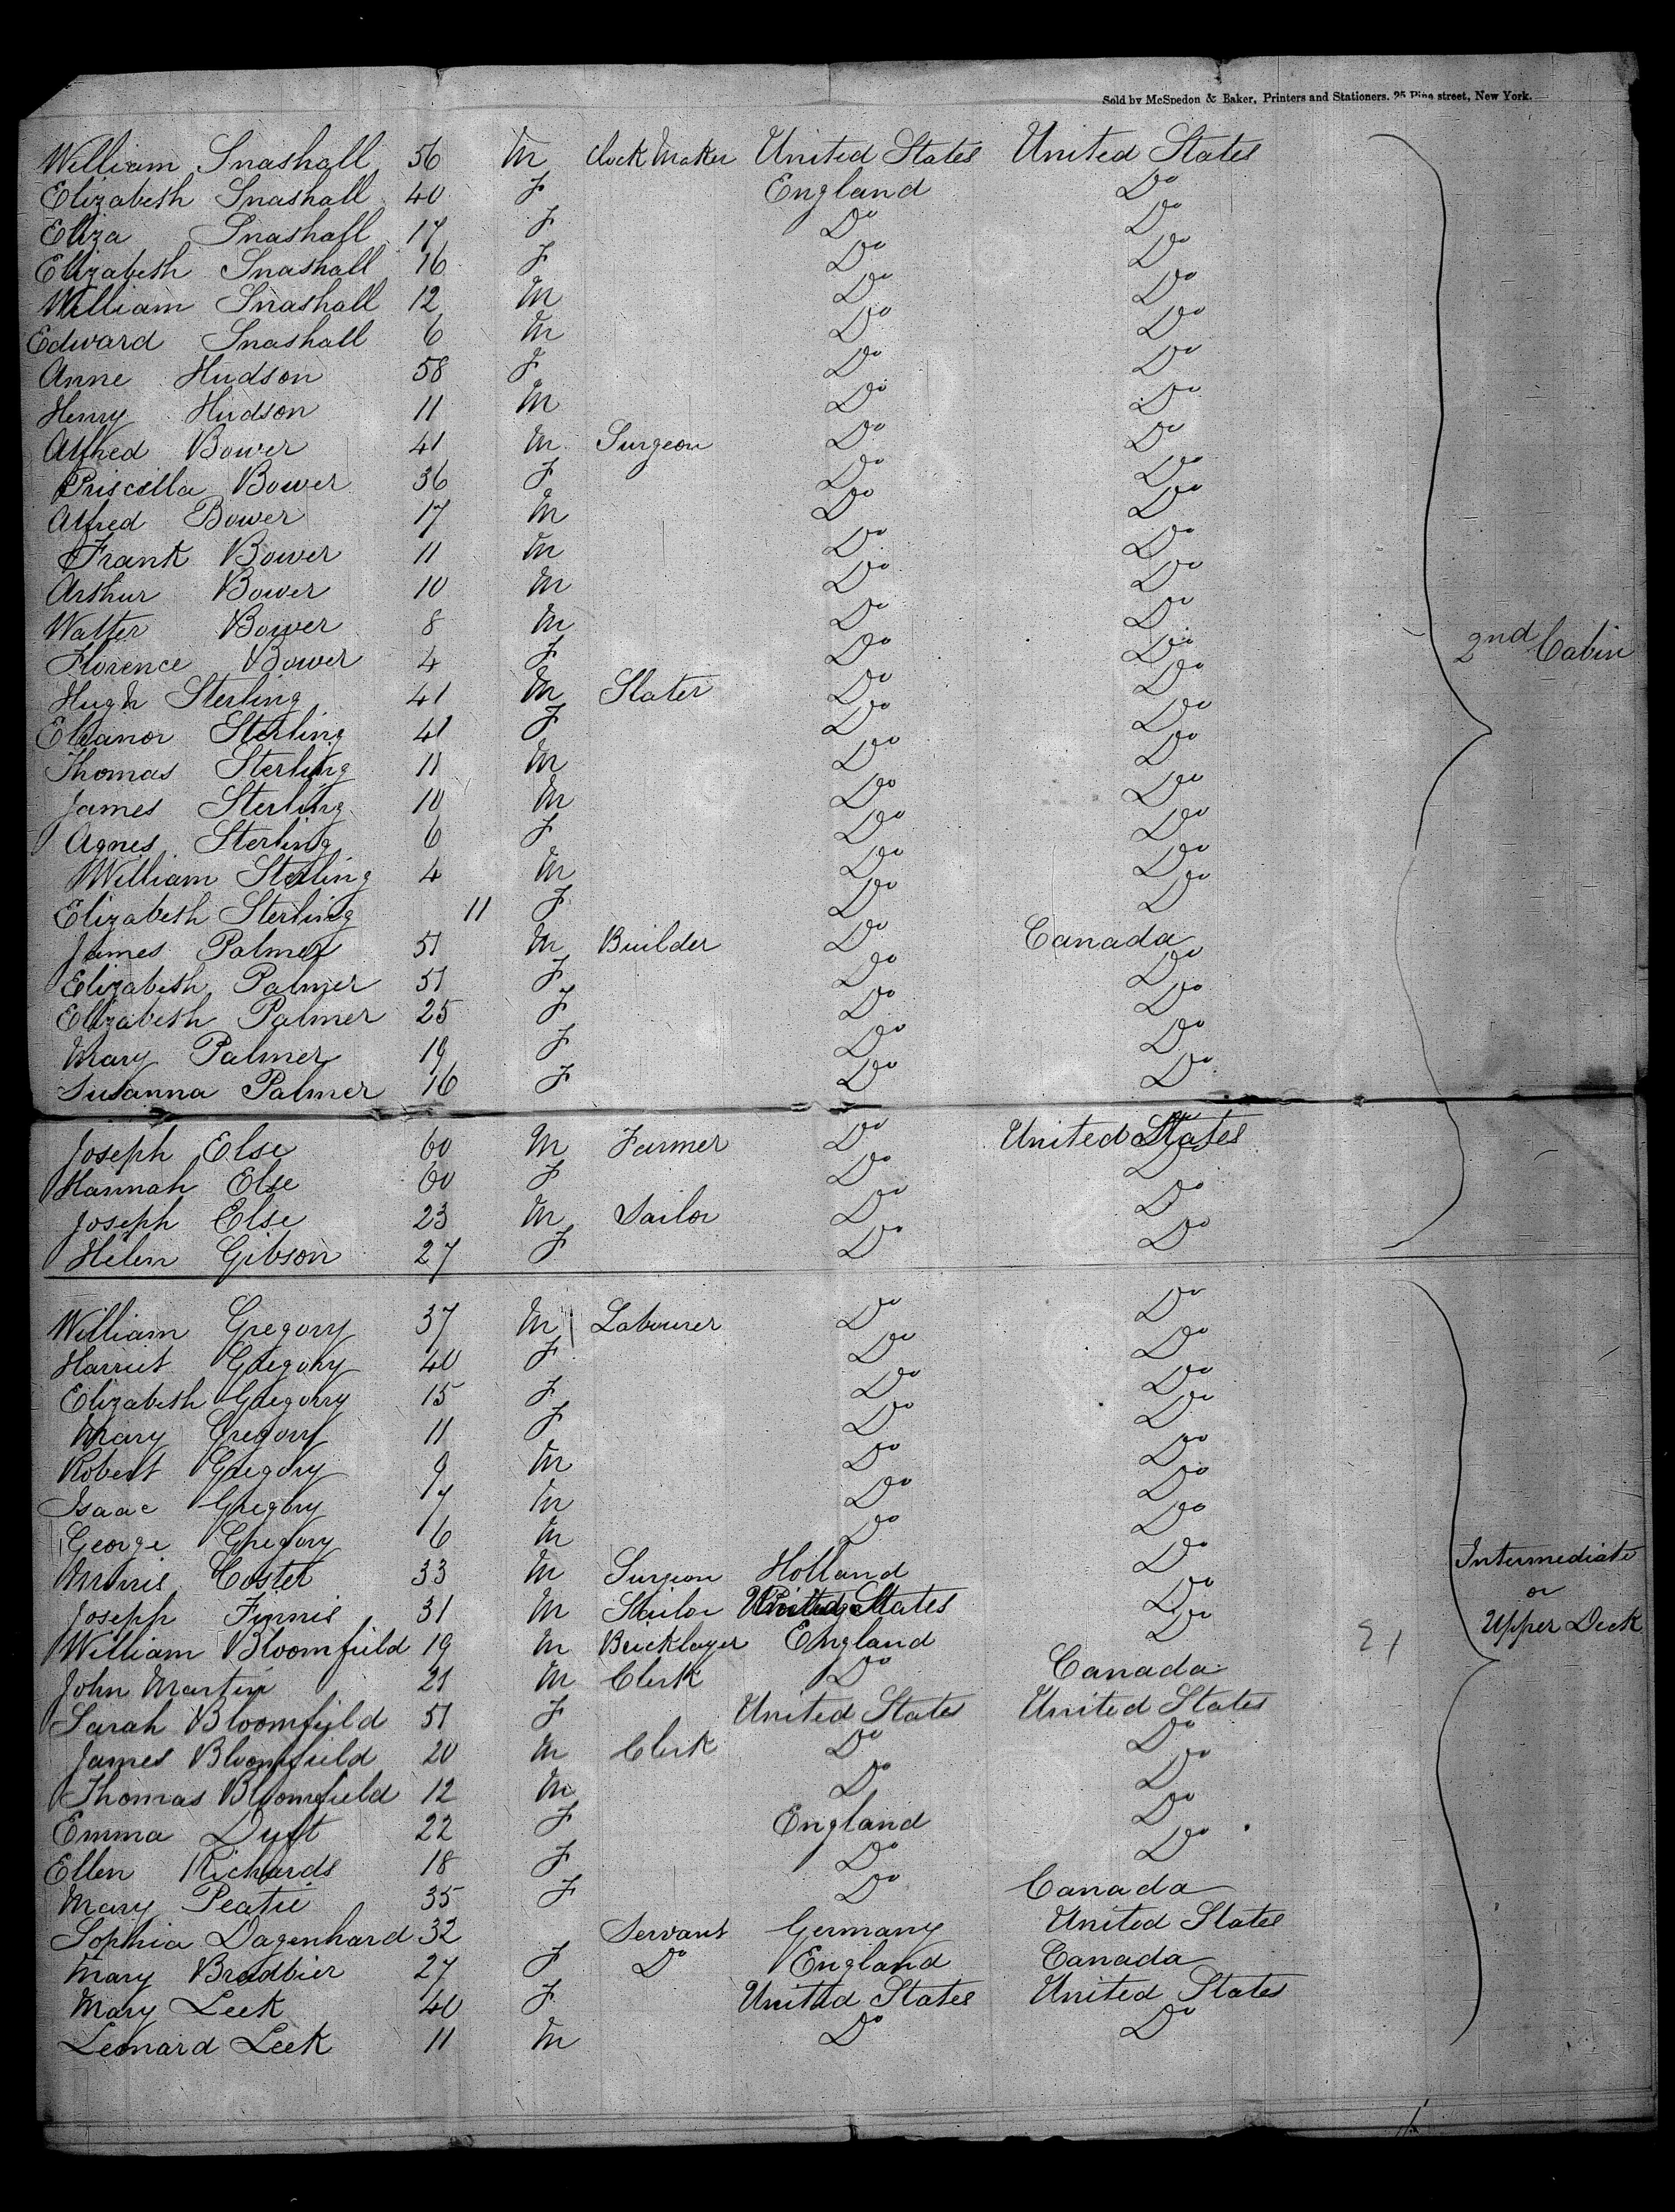 Sold by McSpedon & Baker, Printers and Stationers. 25 Pine street, New York.
William Snashall 56 M Clock Maker United States United States
Elizabeth Snashall 40 F England Do
Eliza Snashall 17 F Do Do
Elizabeth Snashall 16 F Do Do
William Snashall 12 M Do Do
Edward Snashall 6 M Do Do
Anne Hudson 58 F Do Do
Henry Hudson 11 M Do Do
Alfred Bower 41 M Surgeon Do Do
Priscilla Bower 36 F Do Do
Alfred Bower 17 M Do Do
Frank Bower 11 M Do Do
Arthur Bower 10 M Do Do
Walter Bower 8 M Do Do
2nd Cabin
Florence Bower 4 F Do Do
Hugh Sterling 41 M Slater Do Do
Eleanor Sterling 41 F Do Do
Thomas Sterling 11 M Do Do
James Sterling 10 M Do Do
Agnes Sterling 6 F Do Do
William Sterling 4 M Do Do
Elizabeth Sterling 11 F Do Do
James Palmer 51 M Builder Do Canada
Elizabeth Palmer 51 F Do Do
Elizabeth Palmer 25 F Do Do
Mary Palmer 19 F Do Do
Susanna Palmer 16 F Do Do
Joseph Else 60 M Farmer Do United States
Hannah Else 60 F Do Do
Joseph Else 23 M Sailor Do Do
Helen Gibson 27 F Do Do
William Gregory 37 M Labourer Do Do
Harriet Gregory 40 F Do Do
Elizabeth Gregory 15 F Do Do
Mary Gregory 11 F Do Do
Robert Gregory 9 M Do Do
Isaac Gregory 7 M Do Do
George Gregory 6 M Do Do
Intermediate
or
Upper Deck
Morris Coster 33 M Surgeon Holland Do
Joseph Finnis 31 M Sailor United States Do
William Bloomfield 19 M Bricklayer England Do
John Martin 21 M Clerk Do Canada
Sarah Bloomfield 51 F United States United States
James Bloomfield 20 M Clerk Do Do
Thomas Bloomfield 12 M Do Do
Emma Duft 22 F England Do
Ellen Richards 18 F Do Do
Mary Peatie 35 F Do Canada
Sophia Dagenhard 32 Servant Germany United States
Mary Bradbier 27 F Do England Canada
Mary Leek 40 F United States United States
Leonard Leek 11 M Do Do